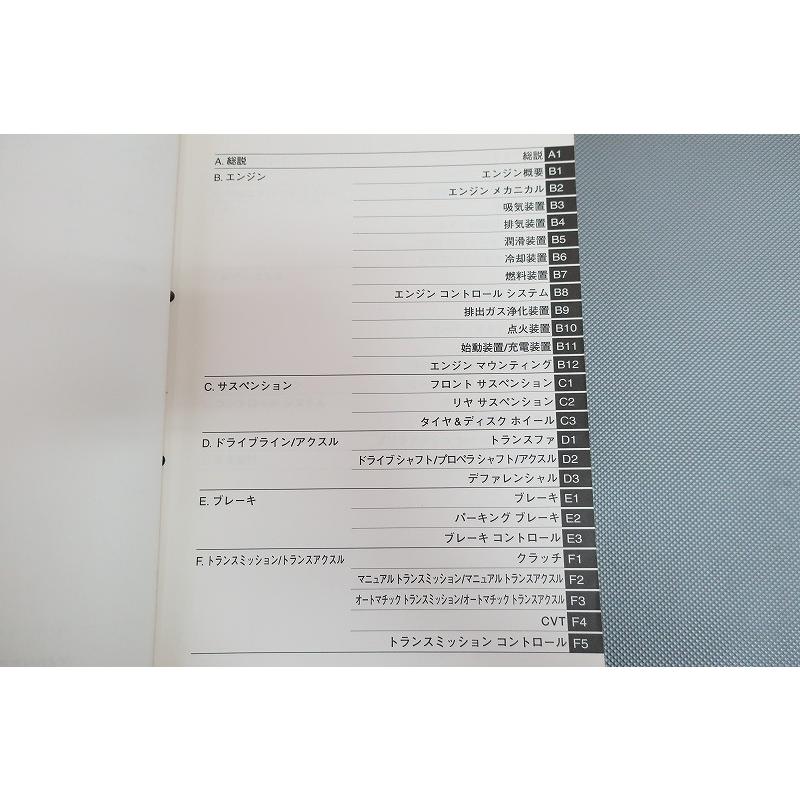 A. 総説 総説 A1
B. エンジン エンジン概要 B1
エンジン メカニカル B2
吸気装置 B3
排気装置 B4
潤滑装置 B5
冷却装置 B6
燃料装置 B7
エンジン コントロール システム B8
排出ガス浄化装置 B9
点火装置 B10
始動装置/充電装置 B11
エンジン マウンティング B12
C. サスペンション フロント サスペンション C1
リヤ サスペンション C2
タイヤ&ディスク ホイール C3
D. ドライブライン/アクスル トランスファ D1
ドライブ シャフト/プロペラ シャフト/アクスル D2
デファレンシャル D3
E. ブレーキ ブレーキ E1
パーキング ブレーキ E2
ブレーキ コントロール E3
F. トランスミッション/トランスアクスル クラッチ F1
マニュアル トランスミッション/マニュアル トランスアクスル F2
オートマチック トランスミッション/オートマチック トランスアクスル F3
CVT F4
トランスミッション コントロール F5